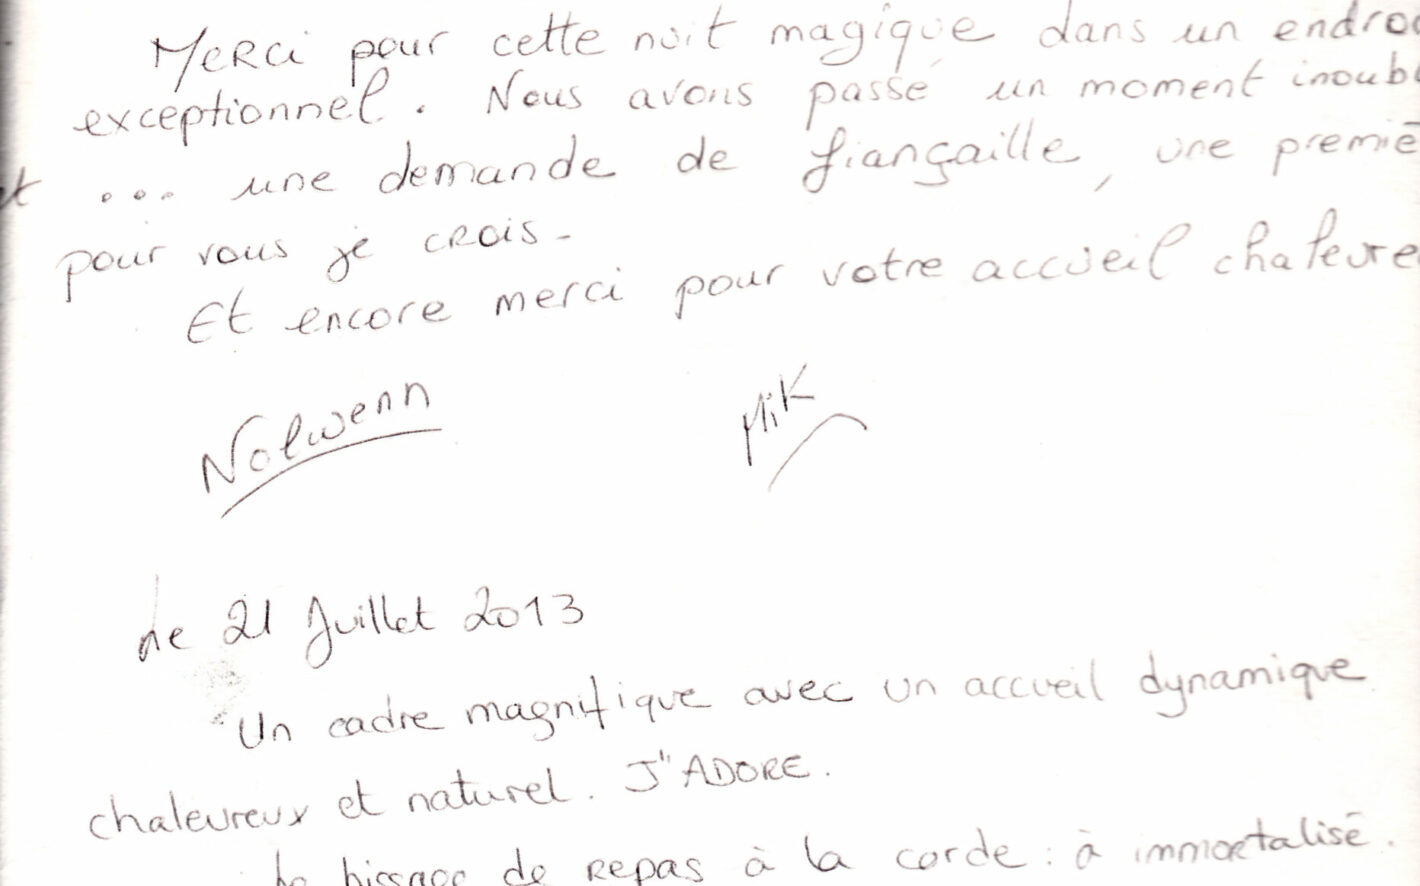 Merci pour cette nuit magique dans un endroi
exceptionnel. Nous avons passé un moment inoubl
et ... une demande de fiançaille, une premiè
pour vous je crois -
Et encore merci pour votre accueil chaleure
Nolwenn
Mik
Le 21 Juillet 2013
Un cadre magnifique avec un accueil dynamique
chaleureux et naturel. J"ADORE.
Le hissage de repas à la corde : à immortalisé.